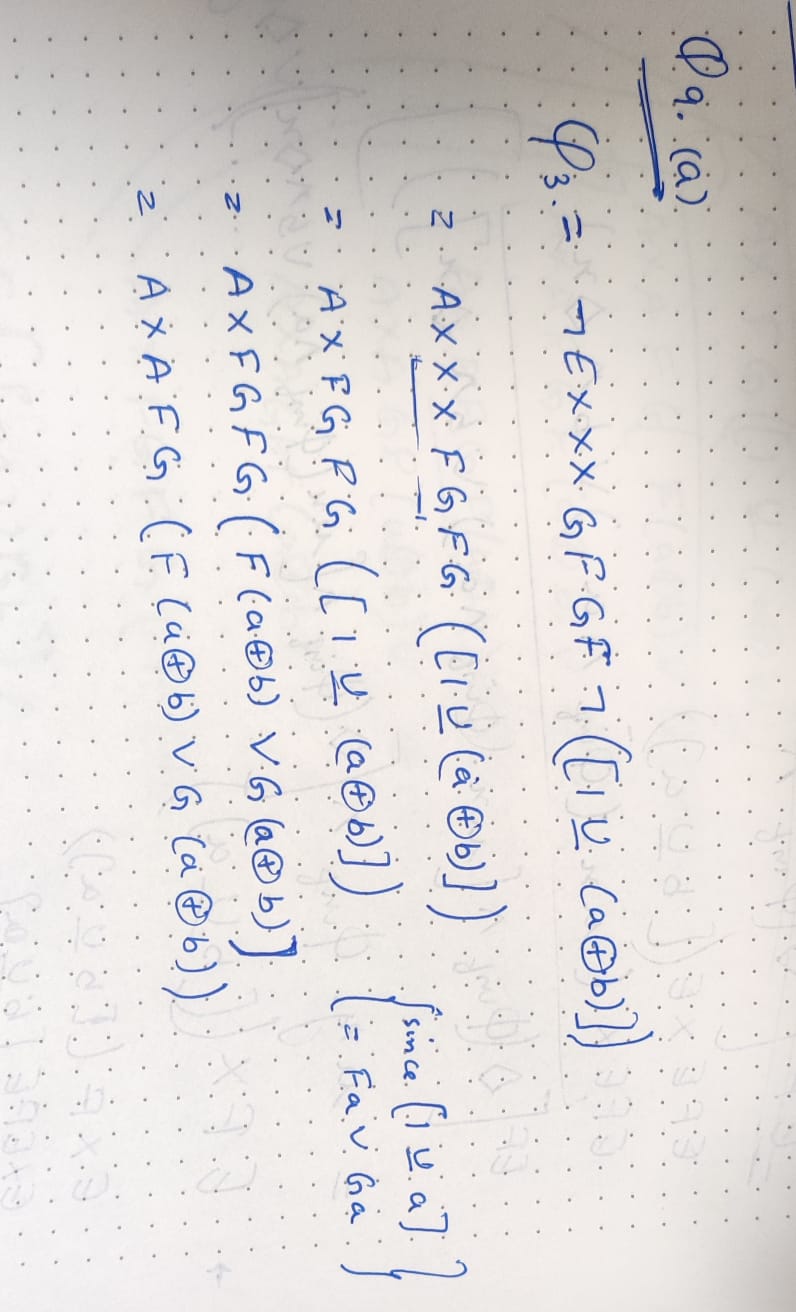 Q 9. (a)
φ₃ = ¬ E X X X G F G F ¬ ([1 U̲ (a ⊕ b)])
= A X X X F G F G ([1 U̲ (a ⊕ b)])
= A X F G F G ([1 U̲ (a ⊕ b)]) {since [1 U̲ a] = Fa ∨ Ga}
= A X F G F G (F (a ⊕ b) ∨ G (a ⊕ b)]
= A X A F G (F (a ⊕ b) ∨ G (a ⊕ b))